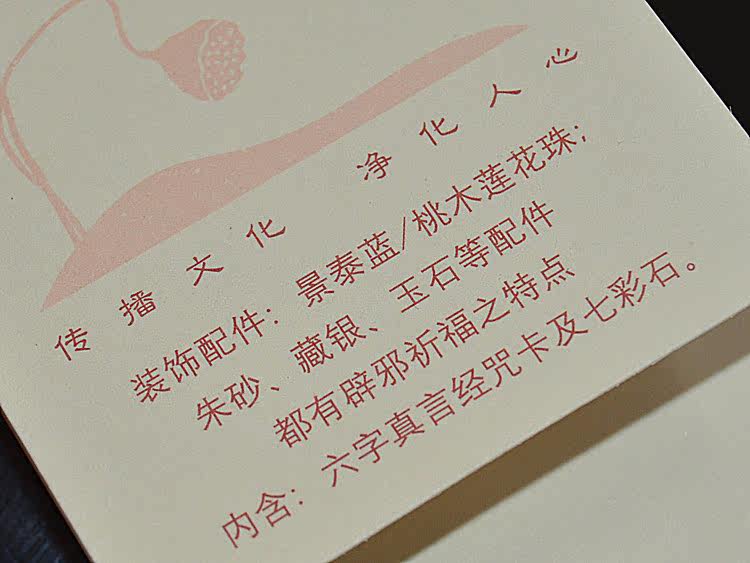 传播文化 净化人心
装饰配件：景泰蓝/桃木莲花珠；
朱砂、藏银、玉石等配件
都有辟邪祈福之特点
内含：六字真言经咒卡及七彩石。